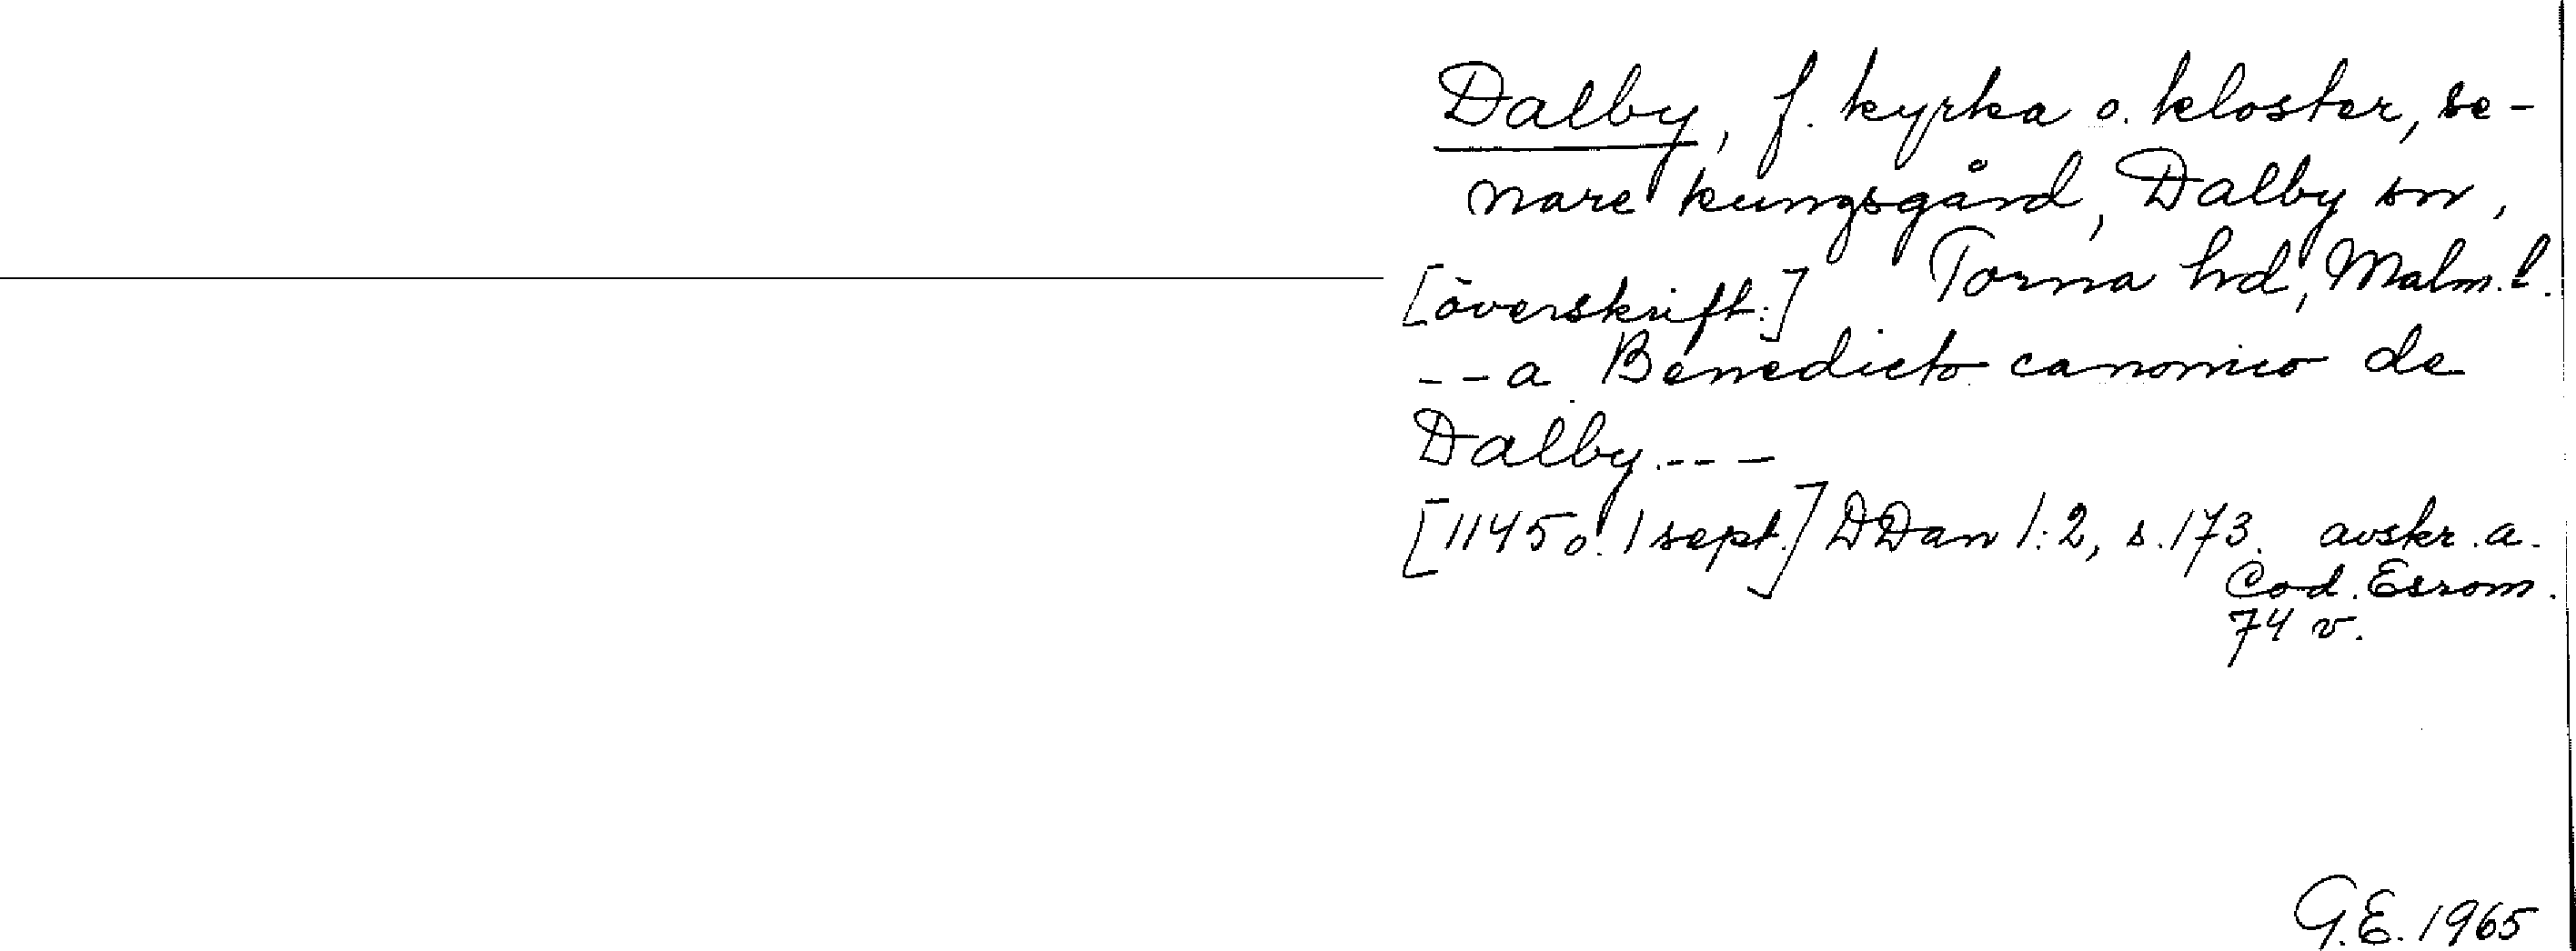 Dalby, f. kyrka o. kloster, se-
nare kungsgård, Dalby sn,
Torna hd, Malm. l.
[överskrift:]
-- a Benedicto canonico de
Dalby ---
[1145 o. 1 sept.] DDan 1:2, s. 173. avskr. a.
Cod. Esrom.
74 v.
G.E. 1965